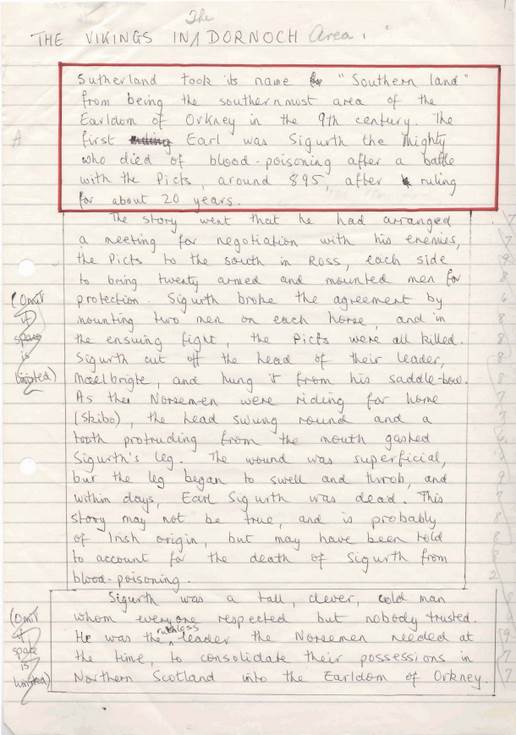 The
THE VIKINGS IN DORNOCH Area.
Sutherland took its name "Southern land"
from being the southernmost area of the
Earldom of Orkney in the 9th century. The
A
first Earl was Sigurth the Mighty
who died of blood-poisoning after a battle
with the Picts, around 895, after ruling
for about 20 years.
The story went that he had arranged
a meeting for negotiation with his enemies,
the Picts to the south in Ross, each side
to bring twenty armed and mounted men for
protection. Sigurth broke the agreement by
mounting two men on each horse, and in
the ensuing fight, the Picts were all killed.
Sigurth cut off the head of their leader,
Maelbrigte, and hung it from his saddle-bow.
As the Norsemen were riding for home
(Skibo), the head swung round and a
tooth protruding from the mouth gashed
Sigurth's leg. The wound was superficial,
but the leg began to swell and throb, and
within days, Earl Sigurth was dead. This
story may not be true, and is probably
of Irish origin, but may have been told
to account for the death of Sigurth from
blood-poisoning.
(Omit
if
space
is
limited)
Sigurth was a tall, clever, cold man
whom everyone respected but nobody trusted.
He was the ruthless leader the Norsemen needed at
the time, to consolidate their possessions in
Northern Scotland into the Earldom of Orkney.
(Omit
if
space
is
limited)